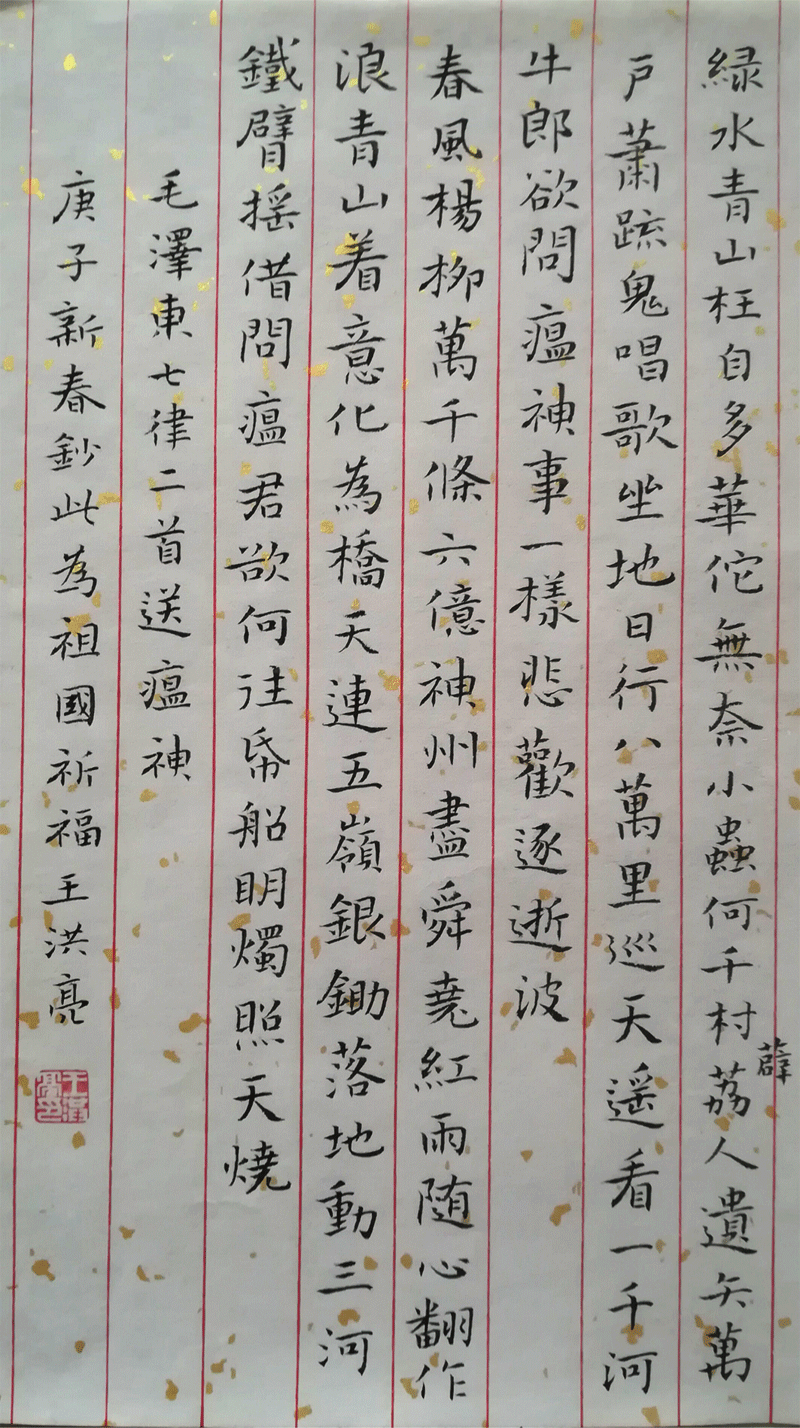 緑水青山枉自多華佗無奈小蟲何千村荔人遺矢萬
薜
戶蕭疏鬼唱歌坐地日行八萬里巡天遥看一千河
牛郎欲問瘟神事一樣悲歡逐逝波
春風楊柳萬千條六億神州盡舜堯紅雨随心翻作
浪青山着意化為橋天連五嶺銀鋤落地動三河
鐵臂揺借問瘟君欲何往帋船明燭照天燒
毛澤東七律二首送瘟神
庚子新春鈔此為祖國祈福王洪亮
王洪亮印